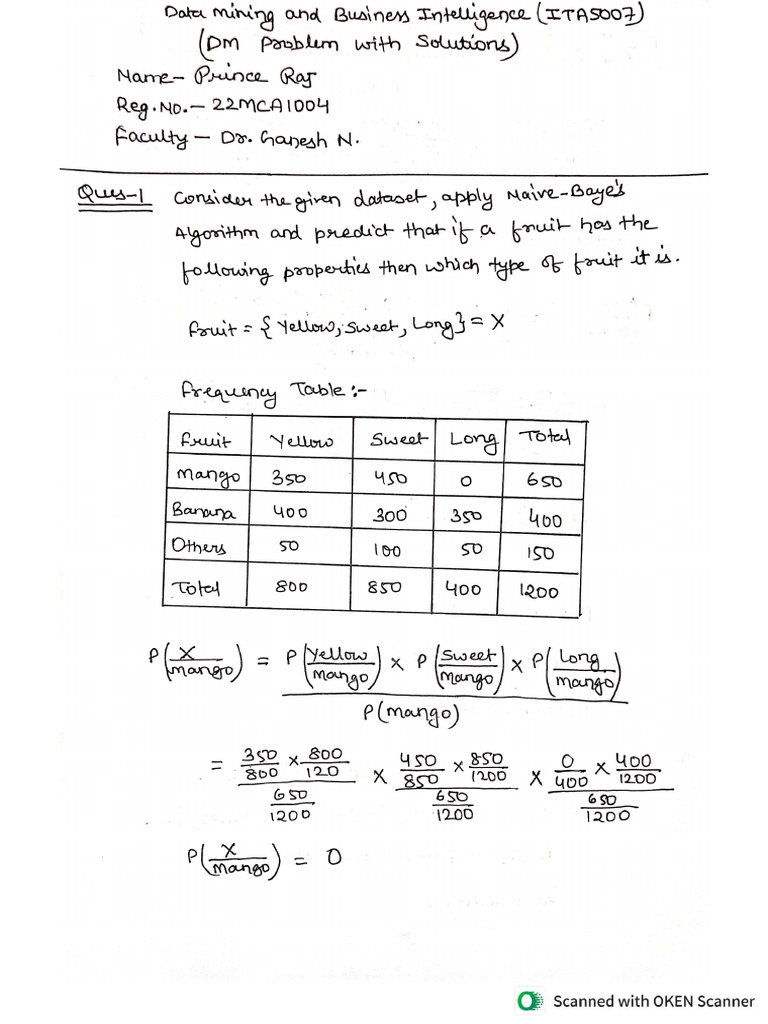 Data Mining and Business Intelligence (ITA5007)
(DM Problem with Solutions)
Name- Prince Raj
Reg.No.- 22MCA1004
Faculty - Dr. Ganesh N.
Ques-1 Consider the given dataset, apply Naive-Baye's
Algorithm and predict that if a fruit has the
following properties then which type of fruit it is.
fruit = {Yellow, Sweet, Long} = X
Frequency Table :-
Fruit Yellow Sweet Long Total
Mango 350 450 0 650
Banana 400 300 350 400
Others 50 100 50 150
Total 800 850 400 1200
P(X/Mango) = P(Yellow/Mango) × P(Sweet/Mango) × P(Long/Mango)
P(mango)
= 350/800 × 800/120 × 450/850 × 850/1200 × 0/400 × 400/1200
650/1200 650/1200 650/1200
P(X/Mango) = 0
Scanned with OKEN Scanner